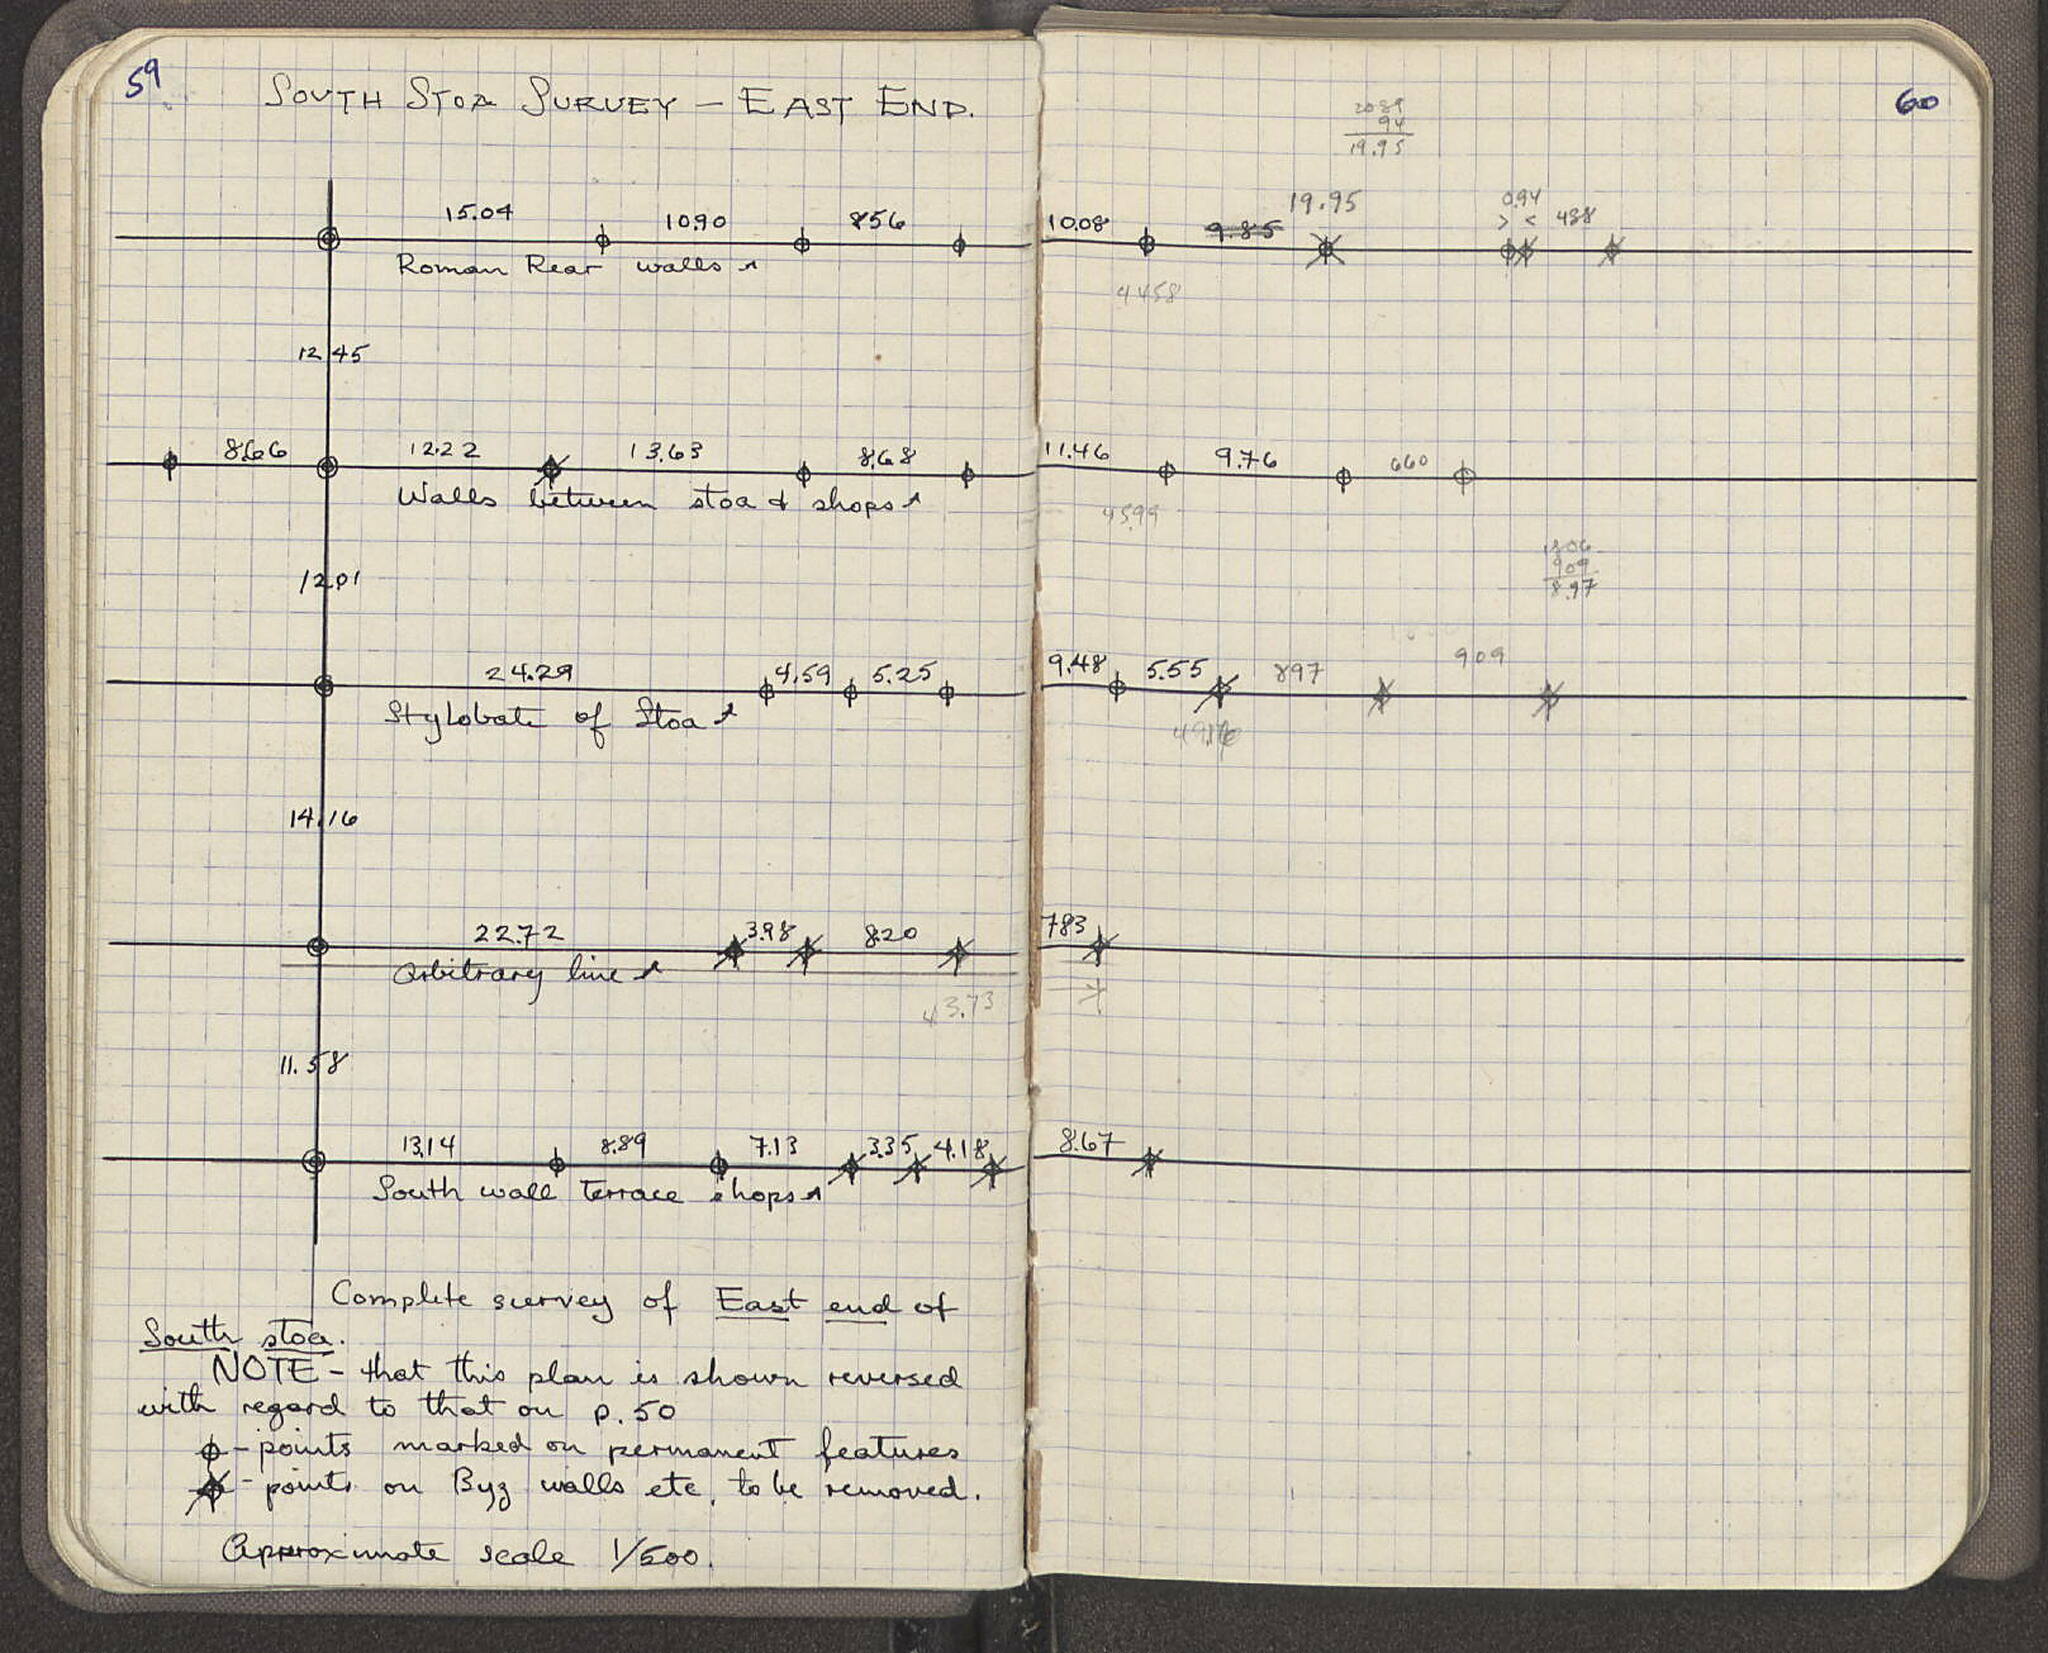 59
SOUTH STOA SURVEY – EAST END.
15.04 10.90 8.56
Roman Rear walls
12.45
8.66 12.22 13.63 8.68
Walls between stoa & shops
12.01
24.29 4.59 5.25
Stylobate of Stoa
14.16
22.72 3.98 8.20
Arbitrary line
43.73
11.58
13.14 8.89 7.13 3.35 4.18
South wall Terrace shops
Complete survey of East end of
South stoa.
NOTE – that this plan is shown reversed
with regard to that on p. 50
– points marked on permanent features
– points on Byz walls etc, to be removed.
Approximate scale 1/500.
60
2089
94
19.95
19.95 0.94
10.08 9.85 > < 438
4458
11.46 9.76 660
4599
909
8.97
9.48 5.55 897 909
783
8.67